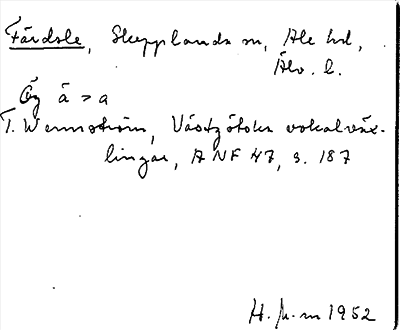 Färdsle, Skepplanda sn, Ale hd,
Älv. l.
Ög å > a
T. Wennström, Västgötska vokalväx-
lingar, ANF 47, s. 187
H. J-m 1952